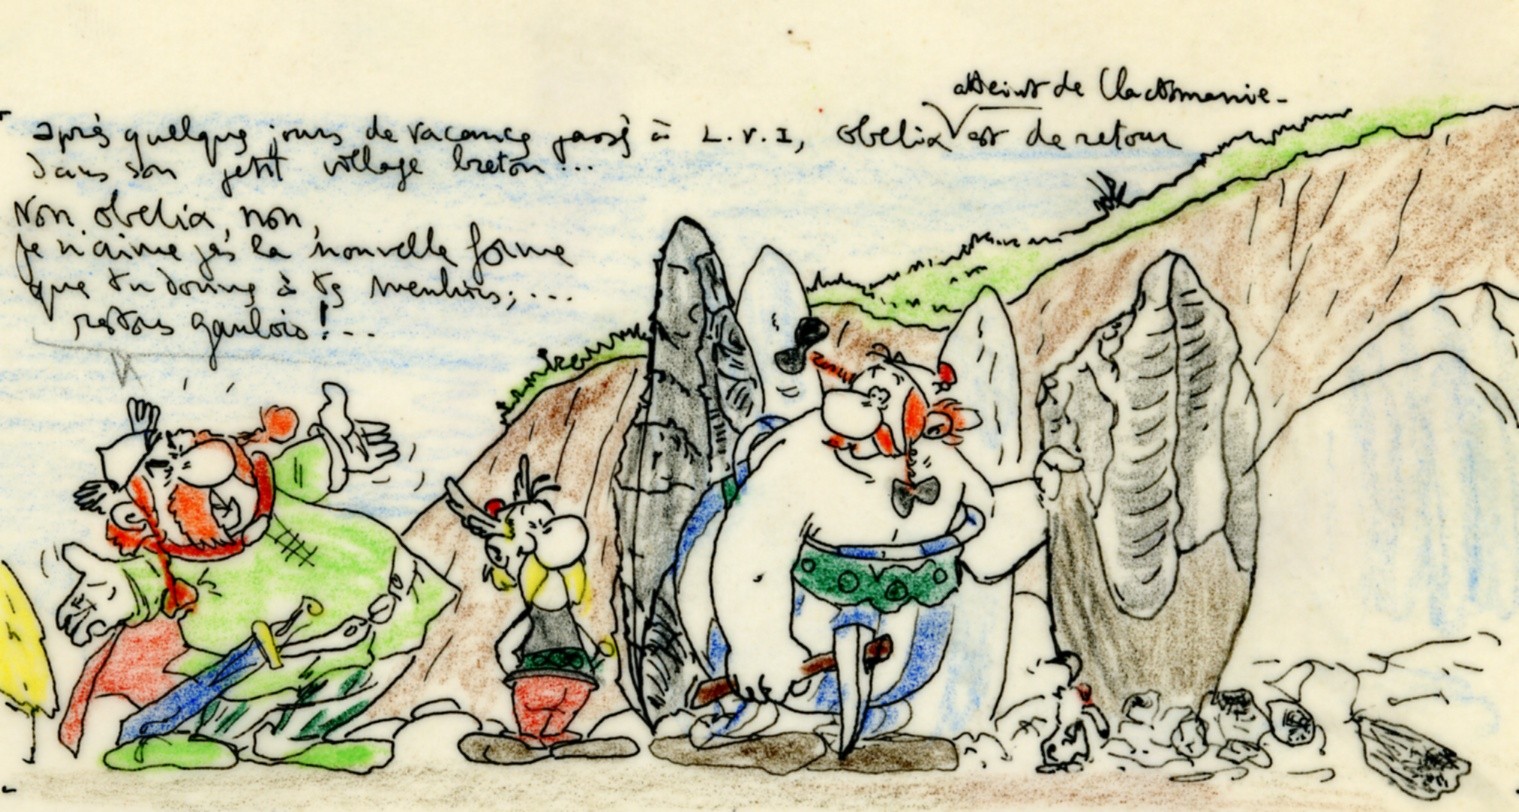 après quelque jours de vacance passé à L.V.I, obelix atteint de Clactomanie est de retour
dans son petit village breton...
Non obelix, non,
je n'aime pas la nouvelle forme
que tu donne à tes menhirs;...
restons gaulois!...